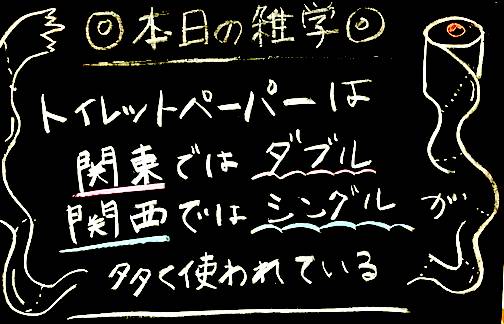 ◎本日の雑学◎
トイレットペーパーは
関東ではダブル
関西ではシングルが
多く使われている